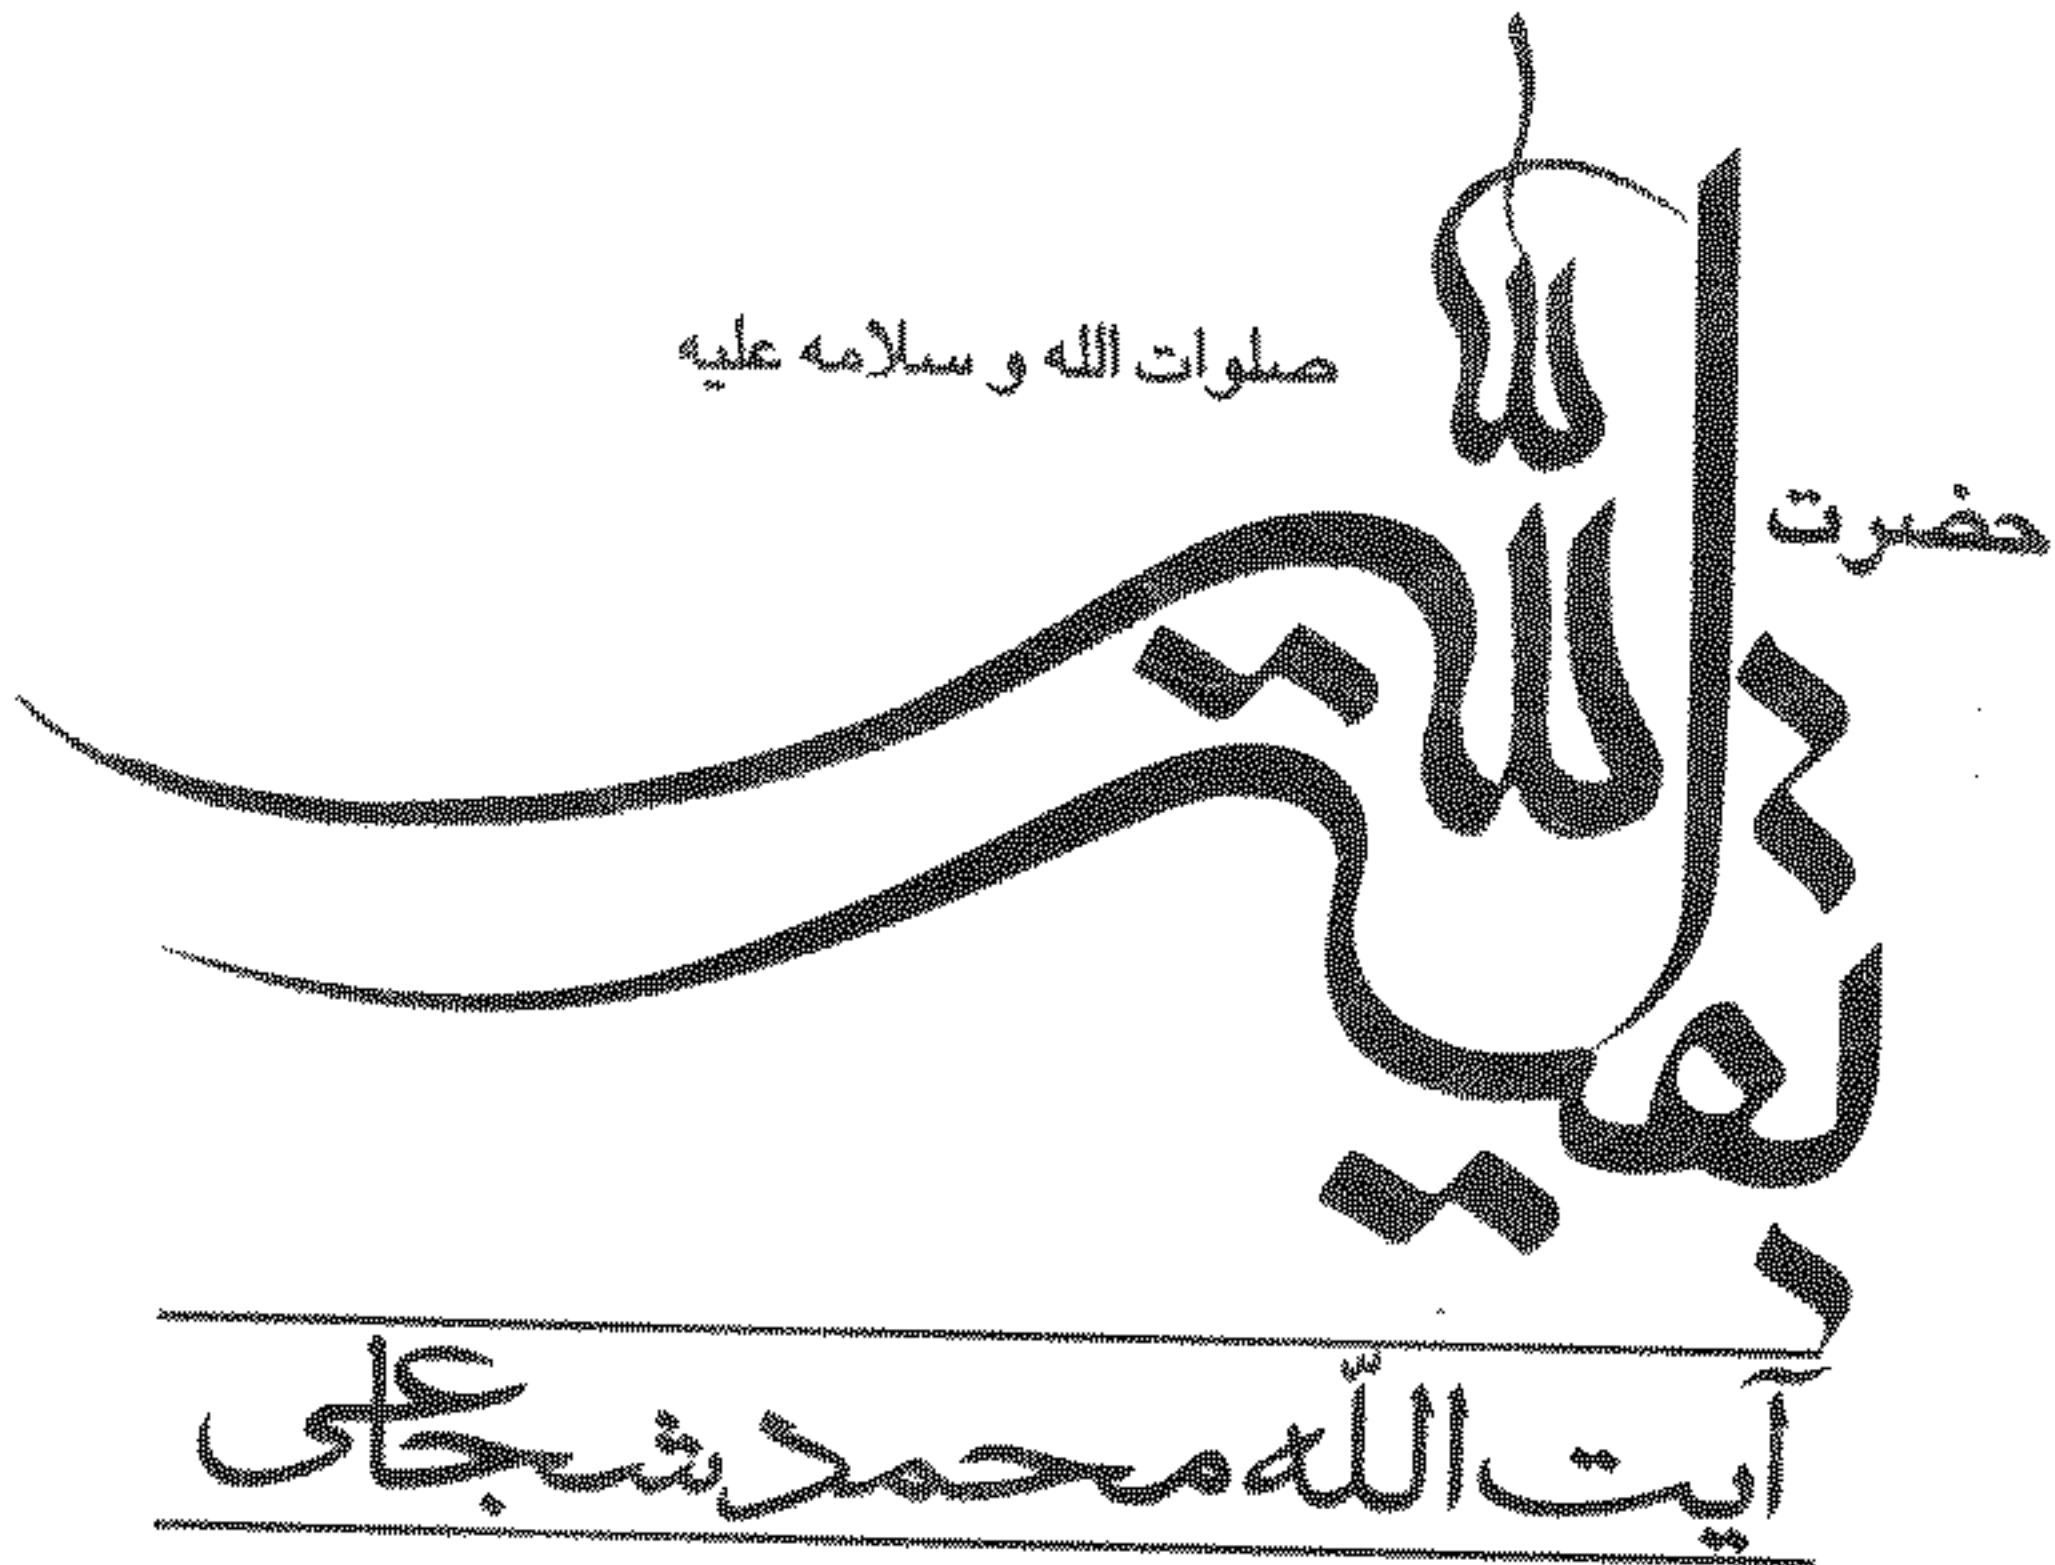 حضرت
بقیة الله
صلوات الله و سلامه علیه
آیت اللّه محمد شجاعی